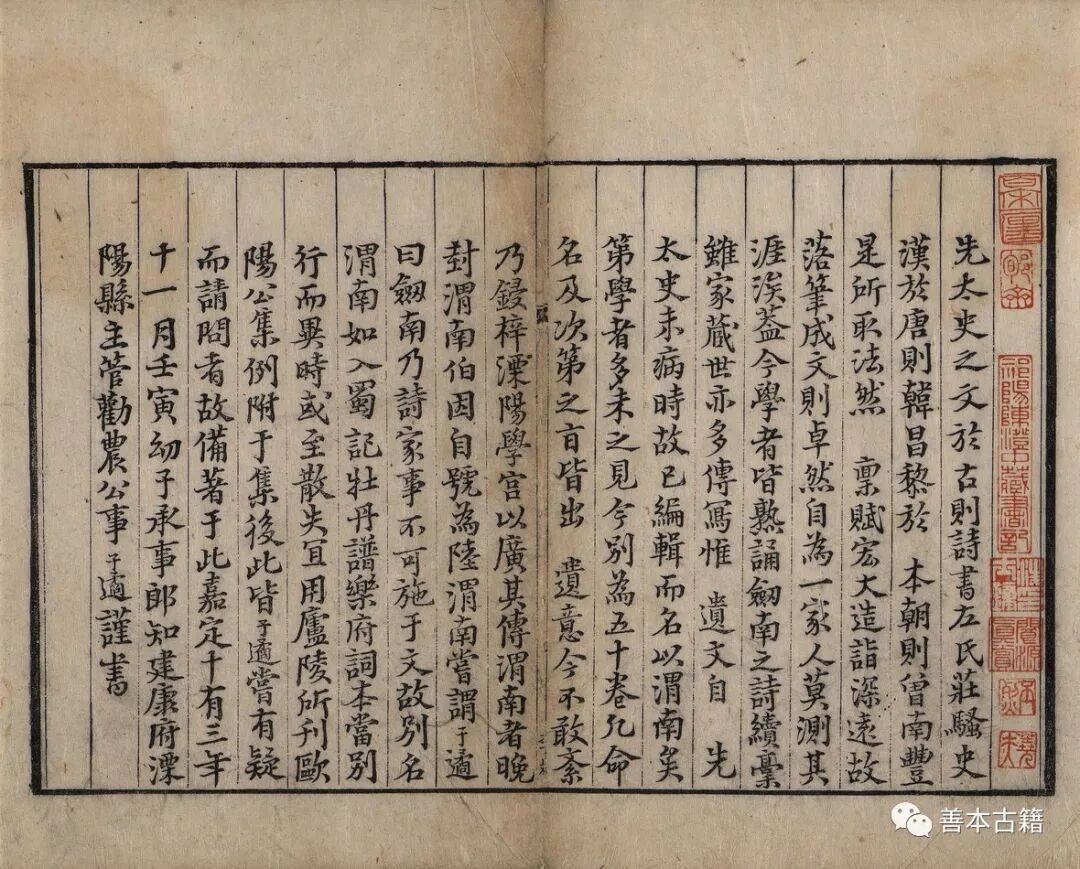 祁陽陳澄中藏書記
先太史之文於古則詩書左氏莊騷史
漢於唐則韓昌黎於　本朝則曾南豐
是所取法然　稟賦宏大造詣深遠故
落筆成文則卓然自為一家人莫測其
涯涘蓋今學者皆熟誦劒南之詩續稾
雖家藏世亦多傳寫惟　遺文自　先
太史未病時故已編輯而名以渭南矣
第學者多未之見今別為五十卷凡命
名及次第之旨皆出　遺意今不敢紊
乃鋟梓溧陽學宮以廣其傳渭南者晚
封渭南伯因自號為陸渭南嘗謂子遹
曰劒南乃詩家事不可施于文故別名
渭南如入蜀記牡丹譜樂府詞本當別
行而異時或至散失宜用廬陵所刊歐
陽公集例附于集後此皆子遹嘗有疑
而請問者故備著于此嘉定十有三年
十一月壬寅幼子承事郎知建康府溧
陽縣主管勸農公事子遹謹書
善本古籍